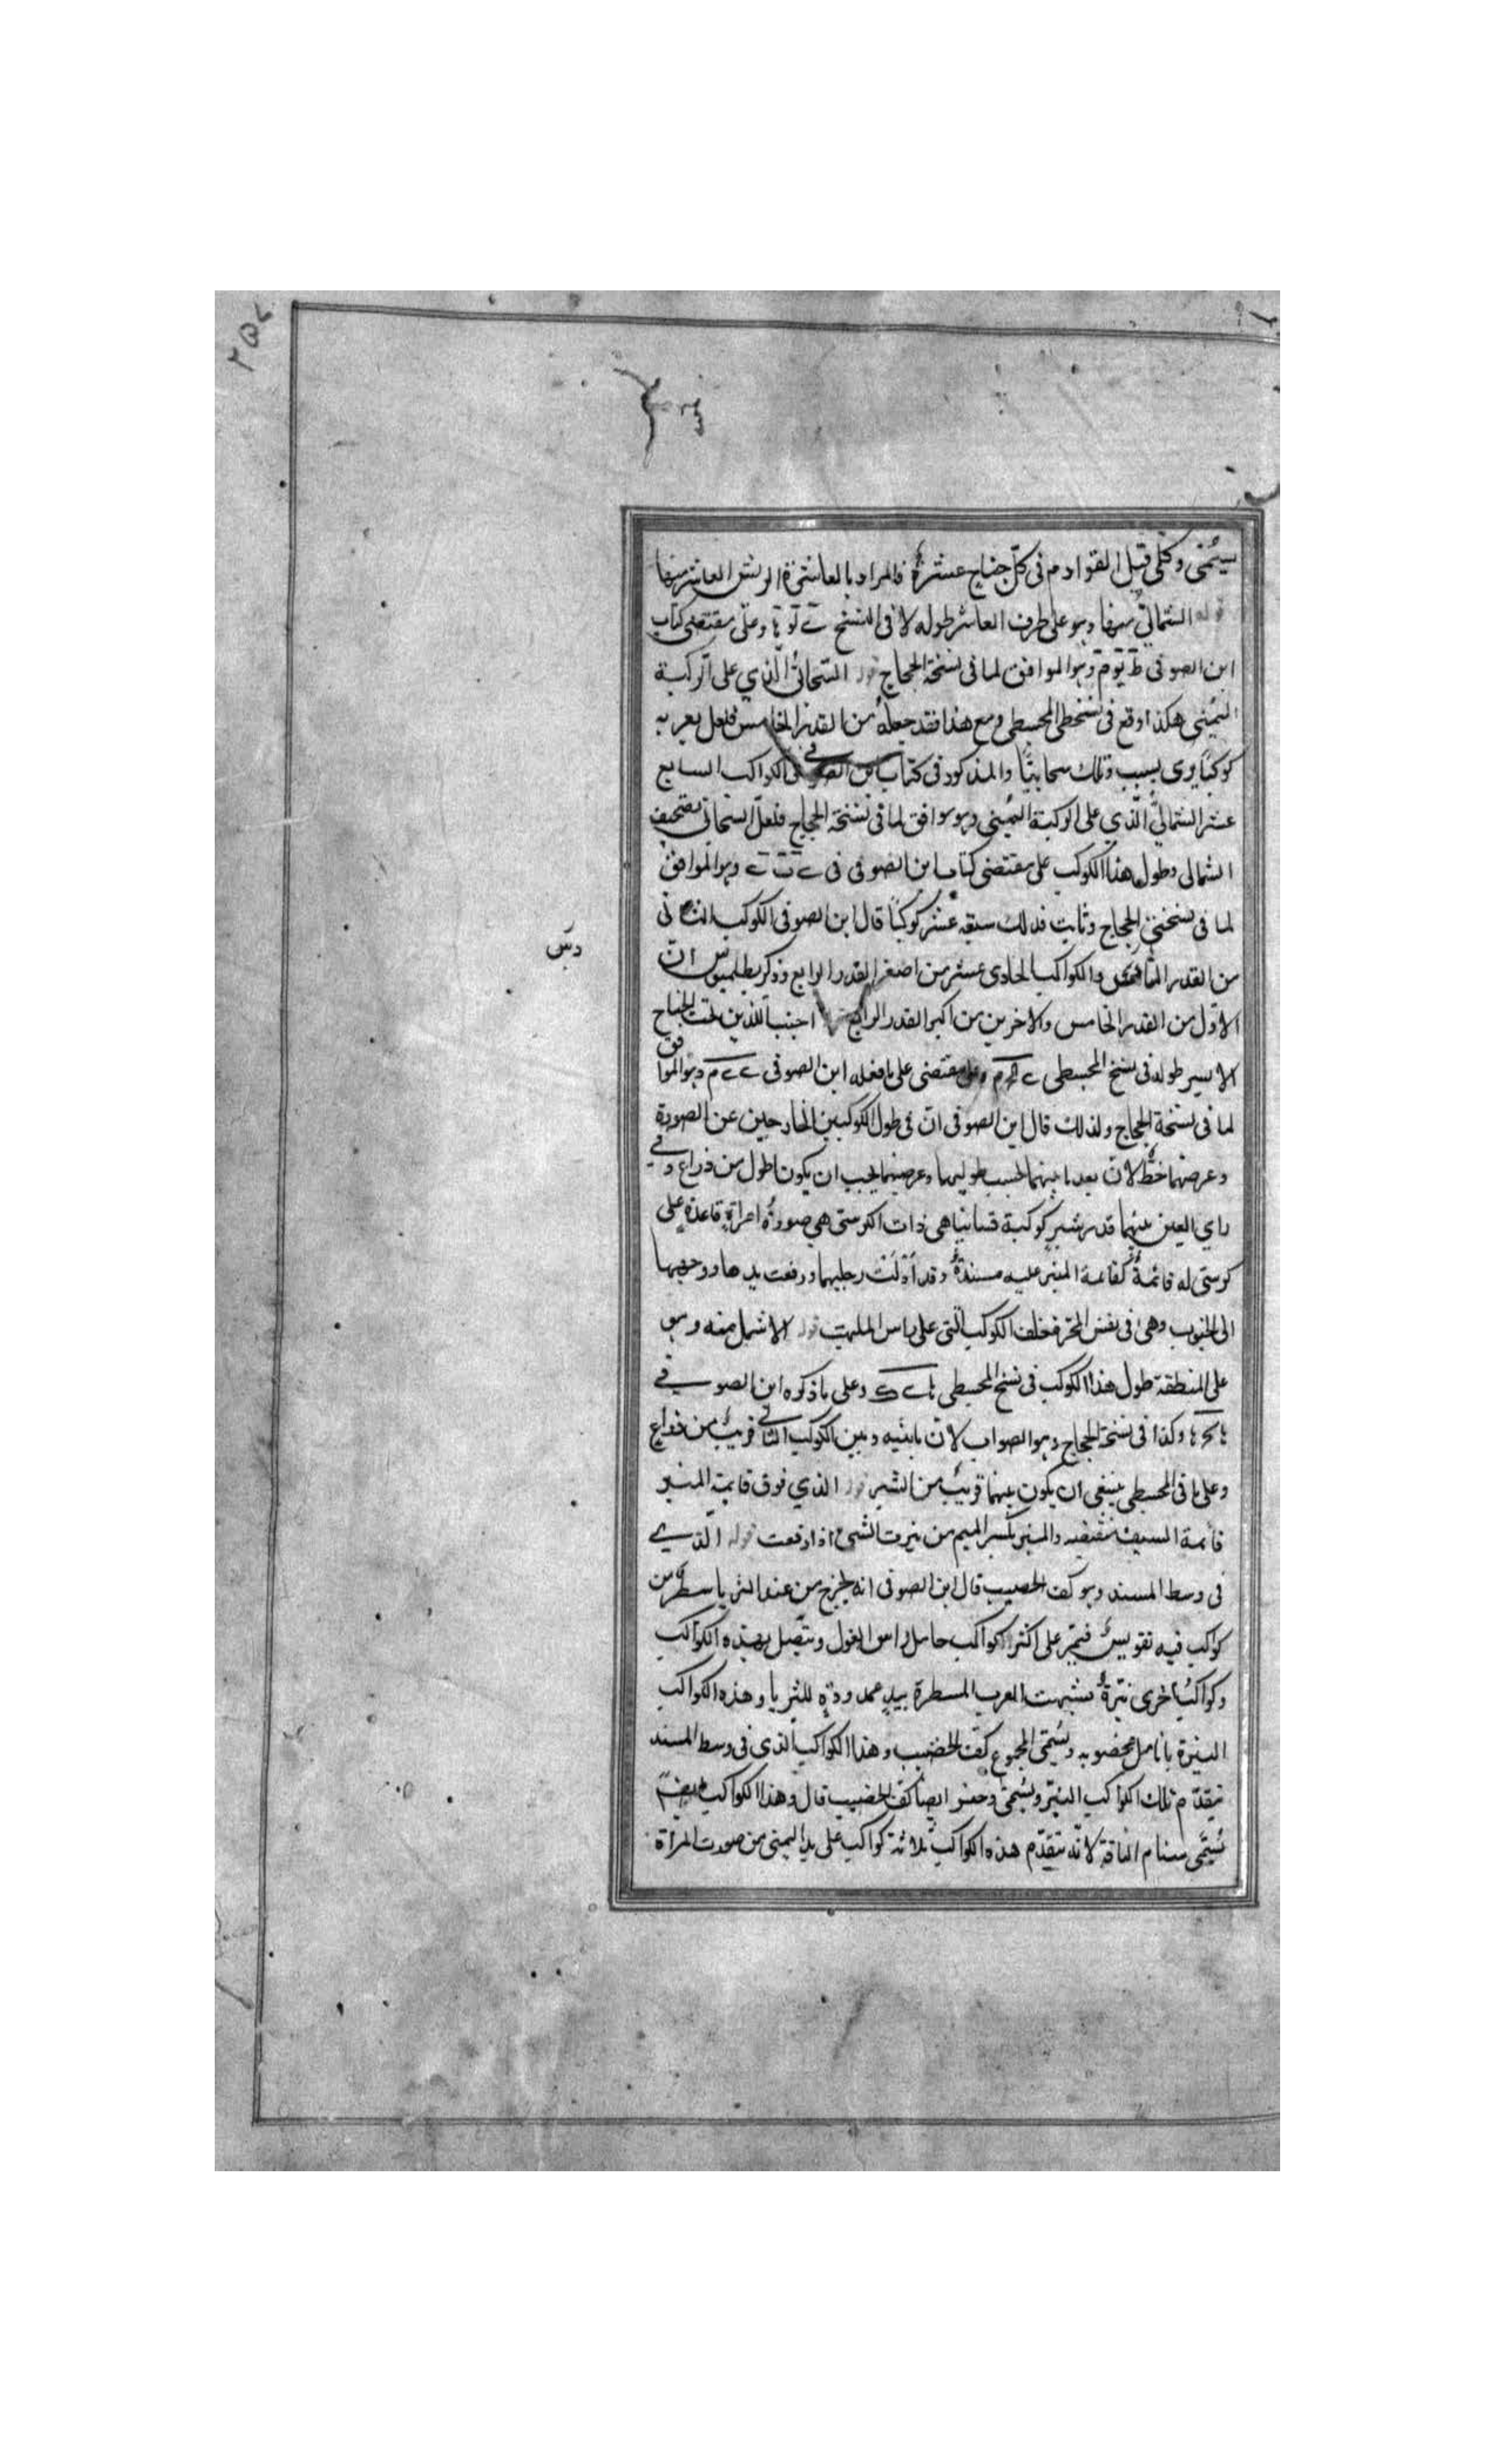 ٢٥٧
يسمى وكلى قيل القوادم فى كل جناح عشرة فالمراد بالعاشرة الريش العاشر منها
قوله الشمالى منها وهو على طرف العاشر طوله لا فى النسخ وعلى مقتضى كتاب
ابن الصوفى وهو الموافق لما فى نسخة الحجاج قوله السحائى الذي على الركبة
اليمنى هكذا وقع فى نسخ المجسطى ومع هذا فقد جعله من القدر الخامس فلعل بعر به
كوكبا يرى بسبب ذلك سحابيا والمذكور فى كتاب ابن الصوفى فى الكواكب السابع
عشر الشمالى الذي على الركبة اليمنى وهو موافق لما فى نسخة الحجاج فلعل السحابى تصحيف
الشمالى وطول هذا الكوكب على مقتضى كتاب ابن الصوفى فى وهو الموافق
لما فى نسختى الحجاج وثابت فذلك سبعة عشر كوكبا قال ابن الصوفى الكوكب الثانى
من القدر والكواكب الحادى عشر من اصغر القدر الرابع وذكر بطلميوس ان
الاول من القدر الخامس والاخرين من اكبر القدر الرابع اجنب اللذين تحت الجناح
الايسر طوله فى نسخ المجسطى وعلى مقتضى على ما فعله ابن الصوفى وهو الموافق
لما فى نسخة الحجاج ولذلك قال ابن الصوفى ان فى طول الكوكبين الخارجين عن الصورة
وعرضهما خطأ لان بعد ما بينهما بحسب طوليهما وعرضيهما يجب ان يكون اطول من ذراع وفى
راي العين بينهما قدر شبر كوكبة قسانيا هى ذات الكرسى هى صورة امراة قاعدة على
كرسى له قائمة كقائمة المنبر عليه مسندة وقد ادلت رجليهما ورفعت يدها ووجهها
الى الجنوب وهى فى نفس المجرة خلف الكوكب التى على راس الملهب قوله الاشمل منه وهو
على المنطقة طول هذا الكوكب فى نسخ المجسطى وعلى ما ذكره ابن الصوفى
وكذا فى نسخة الحجاج وهو الصواب لان ما بينه وبين الكوكب الثانى قريب من ذراع
وعلى ما فى المجسطى ينبغى ان يكون بينهما قريب من الشبر قوله الذي فوق قايمة المنبر
قائمة السيف مقبضه والمنبر بكسر الميم من نبرت الشى اذا رفعت قوله الذي
فى وسط المسند وهو كف الخضيب قال ابن الصوفى انه يخرج من عند الثريا سطر من
كواكب فيه تقويس فيمر على اكثر كواكب حامل راس الغول ويتصل بهذه الكواكب
وكواكب اخرى نيرة شبهت العرب المسطرة بيد ممدودة للثريا وهذه الكواكب
النيرة بانامل مخضوبه ويسمى المجموع كف الخضيب وهذا الكواكب الذى فى وسط المسند
يتقدم تلك الكواكب النير ويسمى وحده ايضا كف الخضيب قال وهذا الكواكب ايضا
يسمى سنام الناقة لانه يتقدم هذه الكواكب ثلاثة كواكب على يد اليمنى من صورت المراة